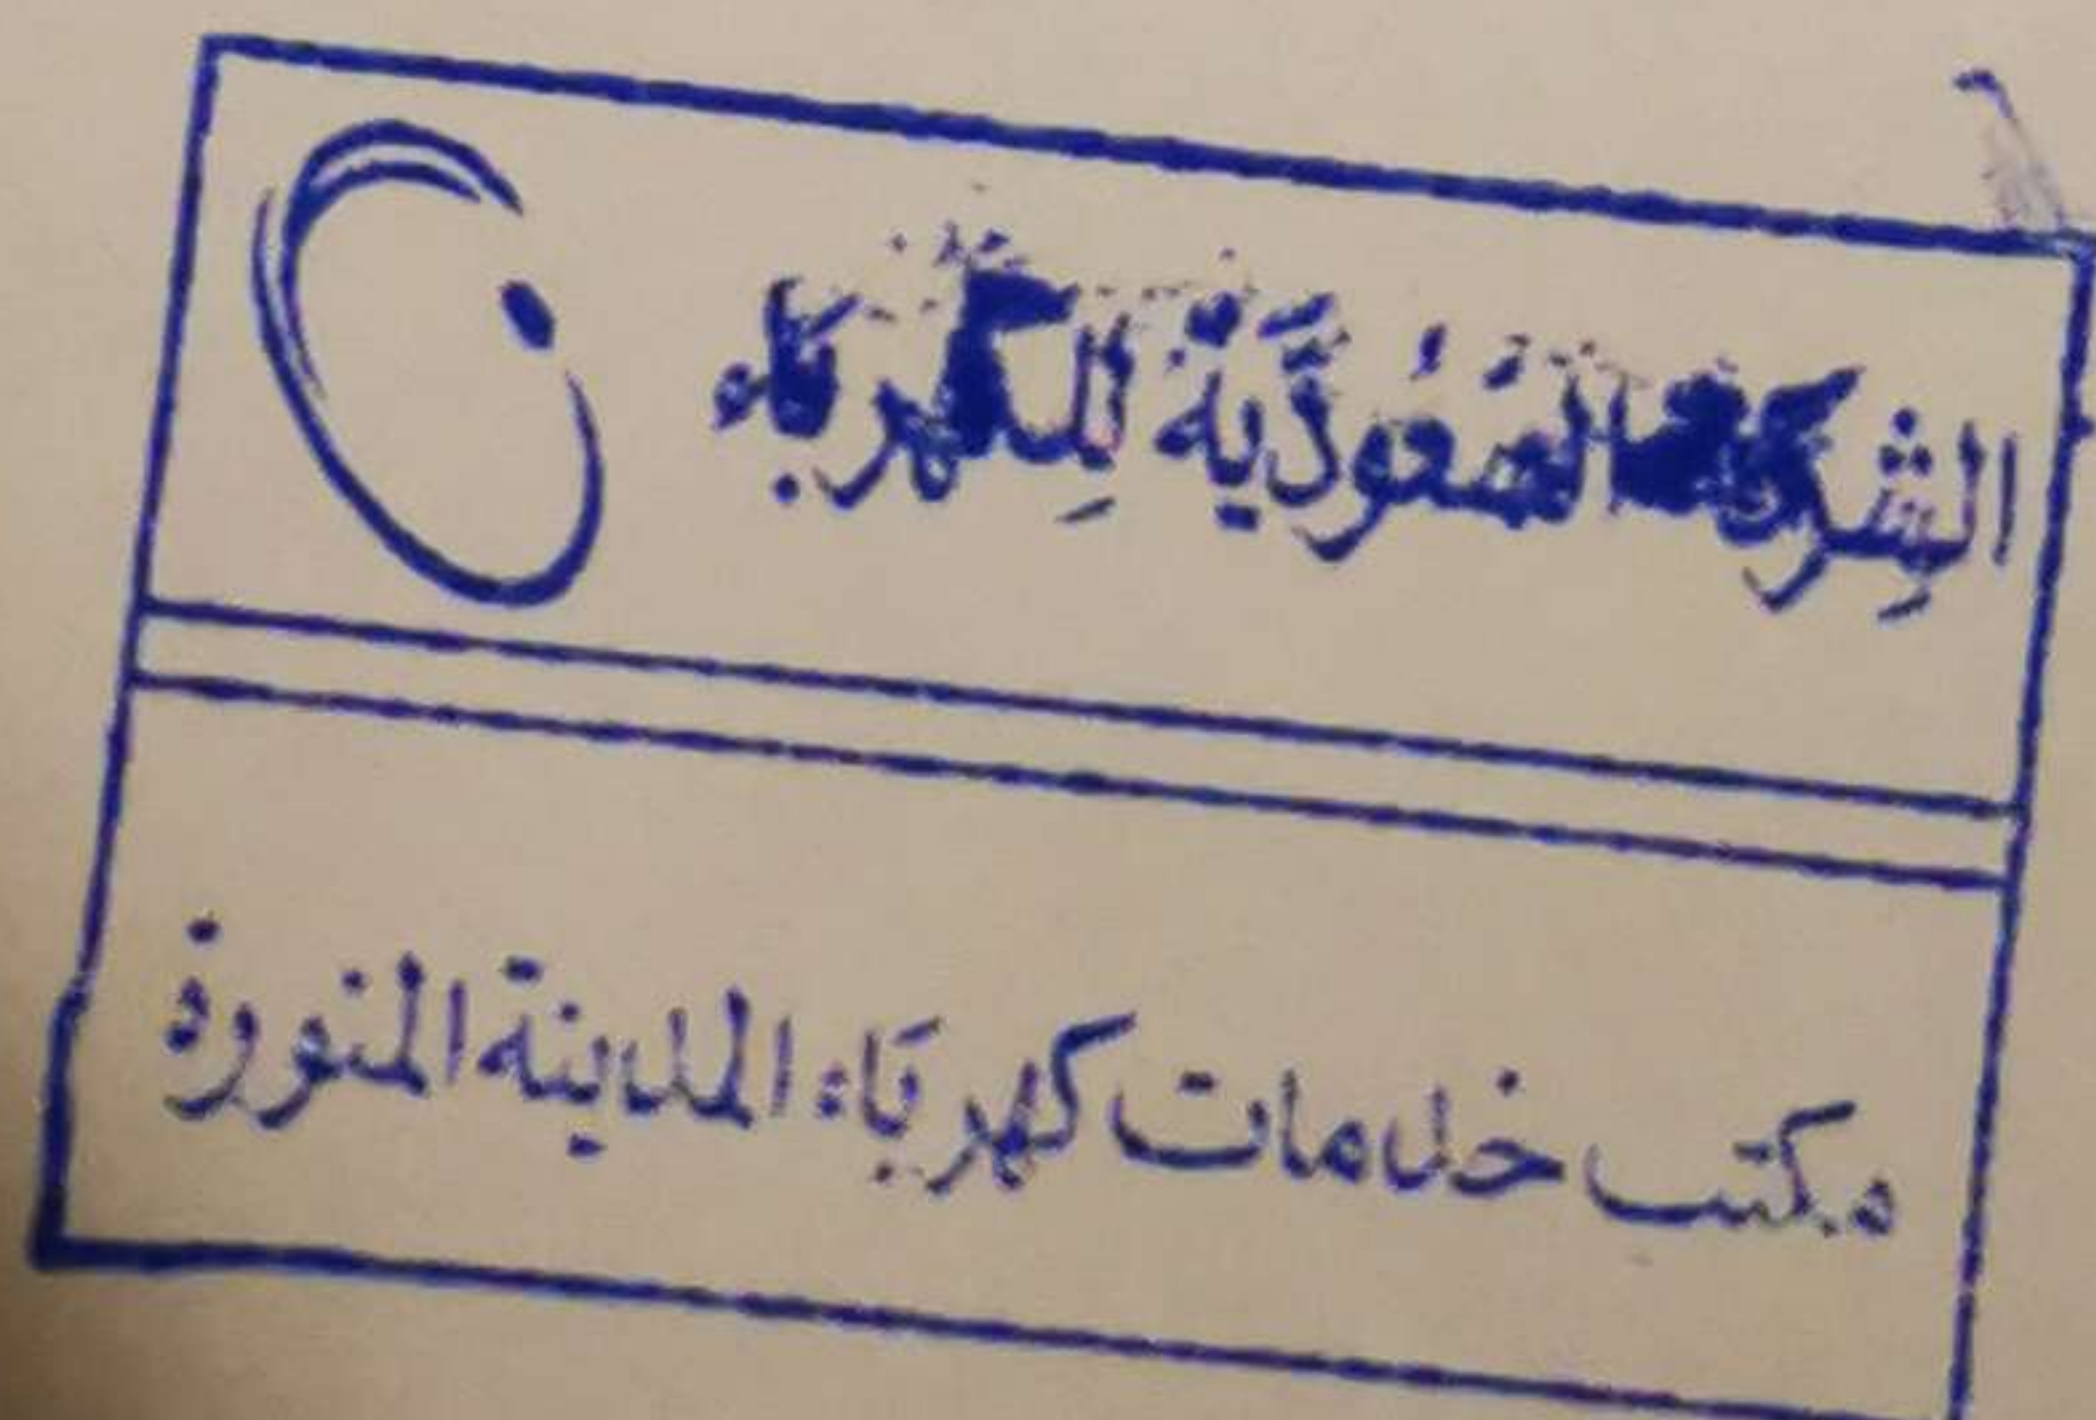 الشِركة السعُوديَّة لِلكهربَاء
مكتب خدمات كهربَاء المدينة المنورة